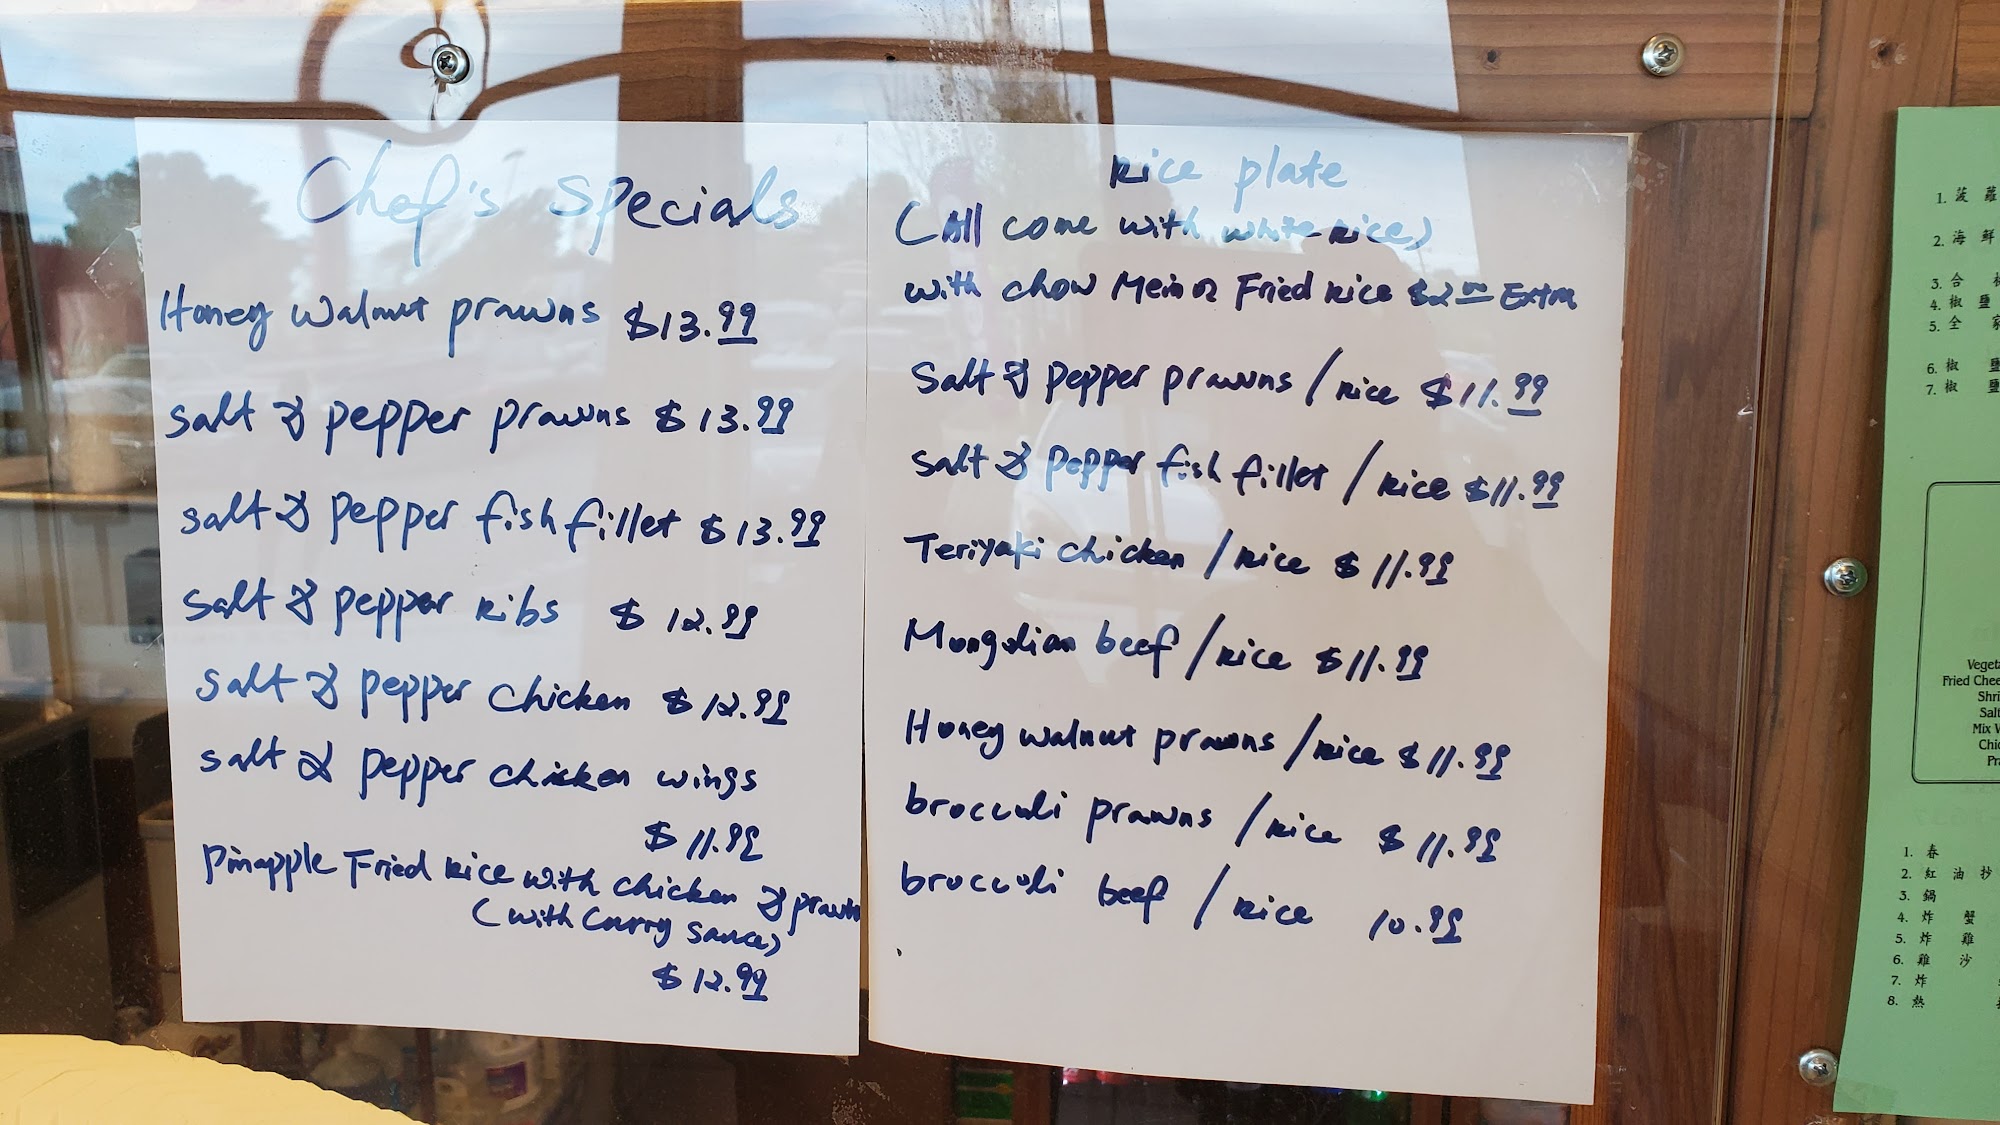 Chef's Specials
Honey Walnut prawns $13.99
Salt & pepper prawns $13.99
Salt & pepper fish fillet $13.99
Salt & pepper Ribs $12.99
Salt & pepper Chicken $12.99
Salt & pepper chicken wings
$11.99
Pineapple Fried Rice with chicken & prawn
(with Curry sauce)
$12.99
Rice plate
(All come with white Rice)
with chow Mein or Fried Rice $2.00 Extra
Salt & pepper prawns / Rice $11.99
Salt & pepper fish fillet / Rice $11.99
Teriyaki chicken / Rice $11.99
Mongolian beef / Rice $11.99
Honey walnut prawns / Rice $11.99
broccoli prawns / Rice $11.99
broccoli beef / Rice 10.99
1. 菠 蘿
2. 海 鮮
3. 合
4. 椒 鹽
5. 全 家
6. 椒 鹽
7. 椒 鹽
Fried
Salt
1. 春
2. 紅 油 抄
3. 鍋
4. 炸 蟹
5. 炸 雞
6. 雞 沙
7. 炸
8. 熱